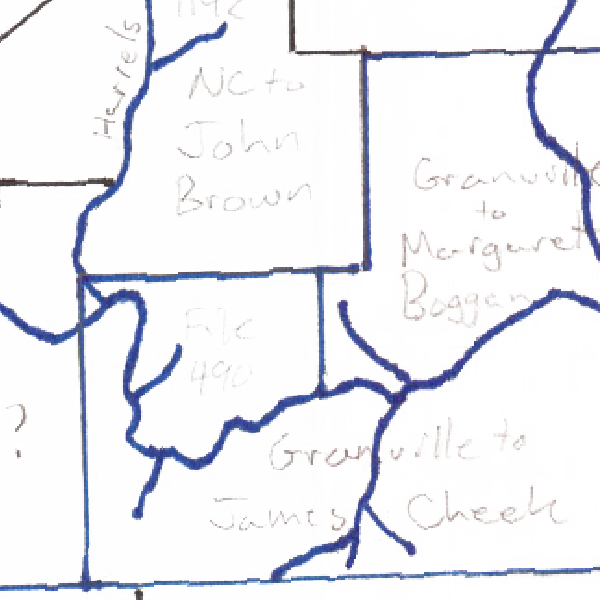 Harrels
NC to
John
Brown
Granville
to
Margaret
Boggan
File
490
?
Granville to
James Cheek